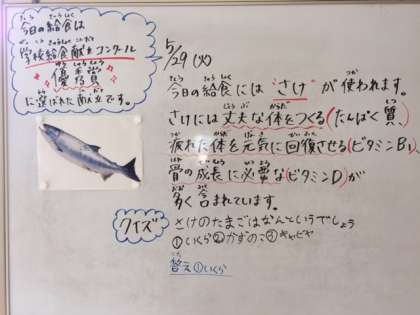 今日の給食は
学校給食献立コンクール
優秀賞
に選ばれた献立です。
5/29(火)
今日の給食には"さけ"が使われます。
さけには丈夫な体をつくる(たんぱく質)、
疲れた体を元気に回復させる(ビタミンB1)、
骨の成長に必要な(ビタミンD)が
多く含まれています。
クイズ
さけのたまごはなんというでしょう
①いくら②かずのこ③キャビヤ
答え①いくら